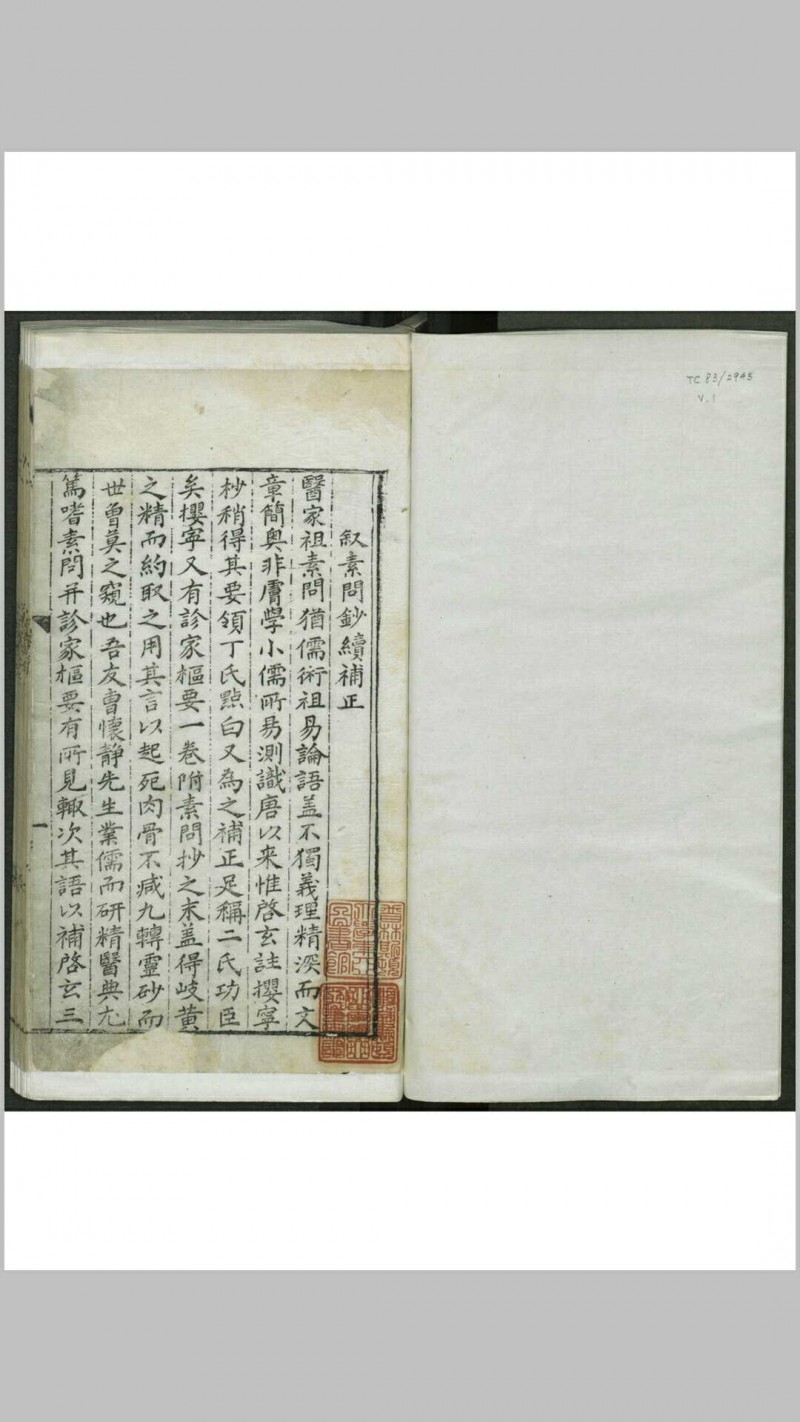 叙素問鈔續補正
醫家祖素問猶儒術祖易論語盖不獨義理精深而文
章簡奧非膚學小儒所易測識唐以来惟啓玄註攖寧
杪稍得其要領丁氏㸃白又為之補正足稱二氏功臣
矣攖寧又有診家樞要一卷附素問抄之末盖得岐黄
之精而約取之用其言以起死肉骨不减九轉靈砂而
世曾莫之窺也吾友曹懷靜先生業儒而研精醫典尤
篤嗜素問并診家樞要有所見輙次其語以補啓玄三
一
TC 83/2945
V.1